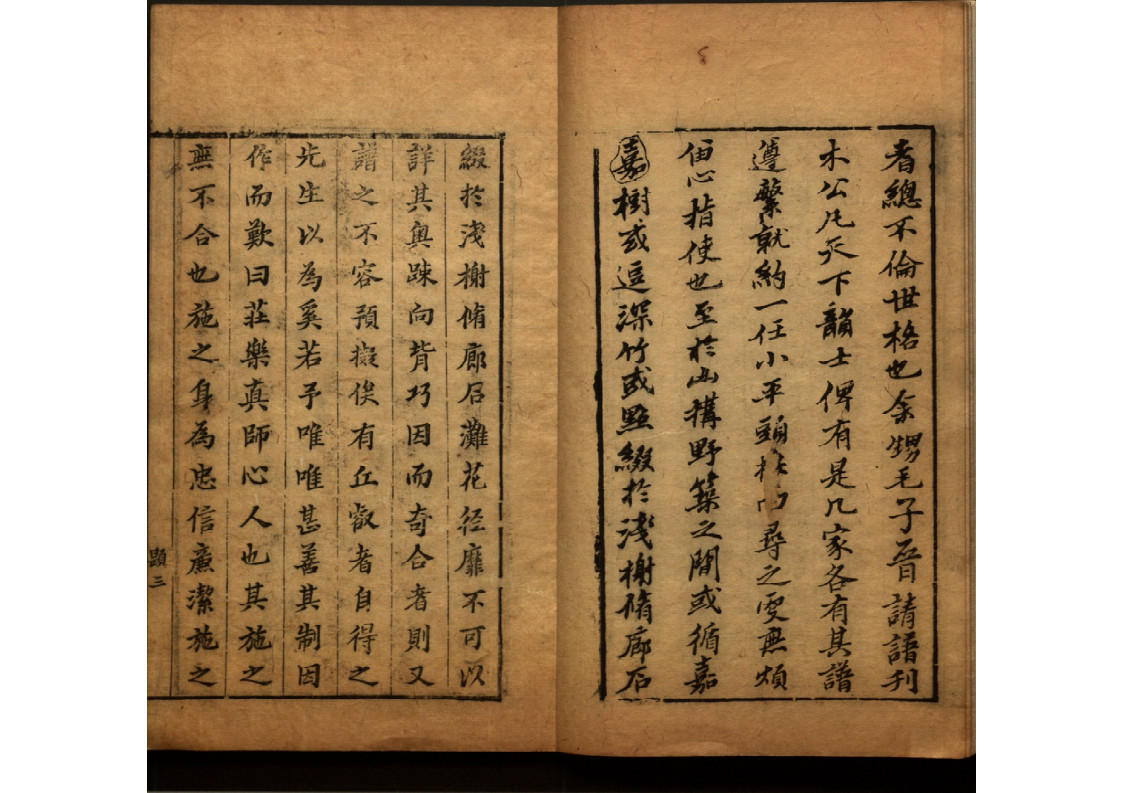 者總不倫世格也余甥毛子晉請譜刋
木公凡天下韻士俾有是几家各有其譜
遵繁就約一任小平頭尋之更無煩
伷心指使也至於山構野築之間或循嘉
嘉樹或逗深竹或點綴於淺榭脩廊石
綴於淺榭脩廊石灘花徑靡不可以
詳其奧踈向背巧因而奇合者則又
譜之不容預擬俟有丘叡者自得之
先生以為奚若予唯唯甚善其制因
作而歎曰莊樂真師心人也其施之
無不合也施之身為忠信廉潔施之
題三